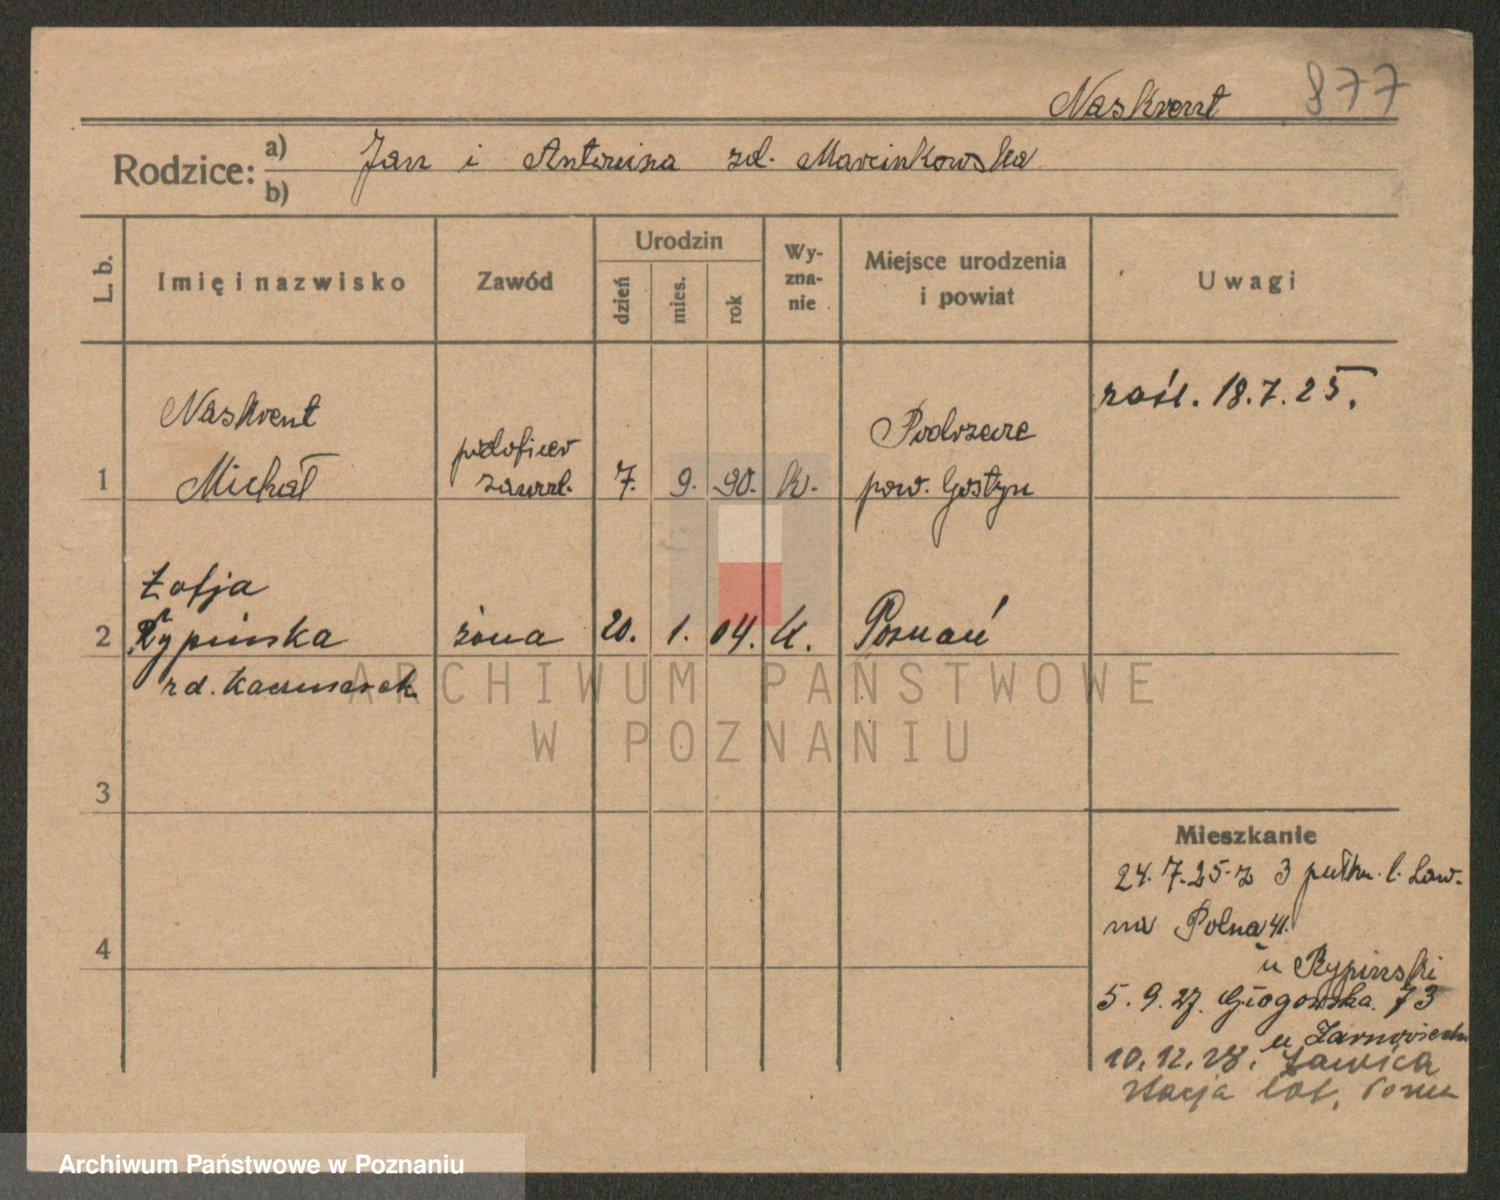 Naskrent 877
Rodzice: a) Jan i Antonina zd. Marcinkowska
b)
L. b.
Imię i nazwisko
Zawód
Urodzin
dzień
mies.
rok
Wy-
zna-
nie
Miejsce urodzenia
i powiat
Uwagi
zaśl. 18.7.25.
Naskrent
podoficer
Podrzecze
1 Michał zawod. 7. 9. 90. k. pow. Gostyn
Zofja
2 Rypińska żona 20. 1. 04. k. Poznań
zd. Kaczmarek
3
4
Mieszkanie
24.7.25 z 3 pułku l. Law-
na Polna 41.
u Rypinski
5.9.27. Głogowska 73
u
10.12.28. Ławica
stacja lot.
ARCHIWUM PAŃSTWOWE
W POZNANIU
Archiwum Państwowe w Poznaniu